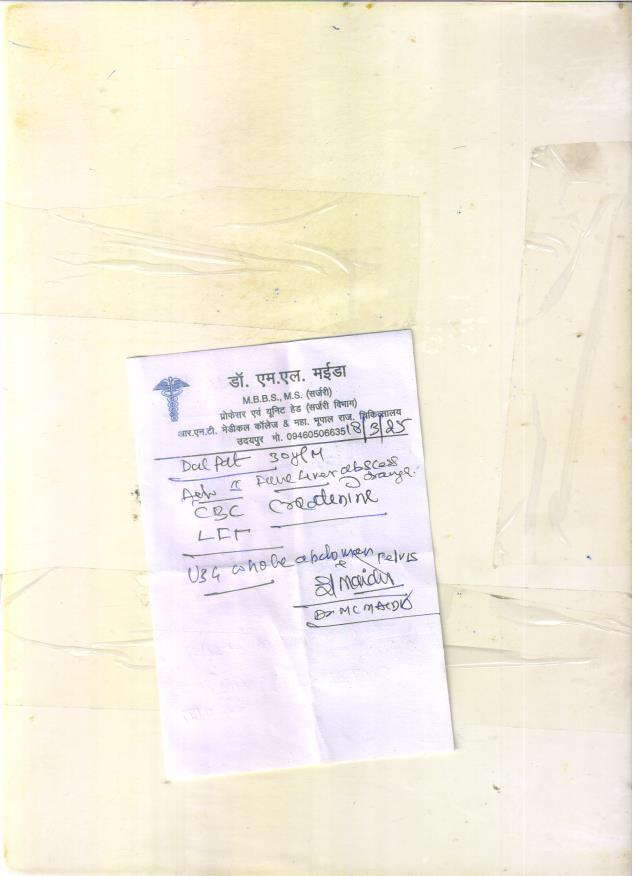 डॉ. एम.एल. मईडा
M.B.B.S., M.S. (सर्जरी)
प्रोफेसर एवं यूनिट हेड (सर्जरी विभाग)
आर.एन.टी. मेडीकल कॉलेज & महा. भूपाल राज. चिकित्सालय
उदयपुर मो. 09460506635 18/3/25
Dalpat 30y/M
Liver abscess
drainage
CBC Creatinine
LFT
USG whole abdomen & Pelvis